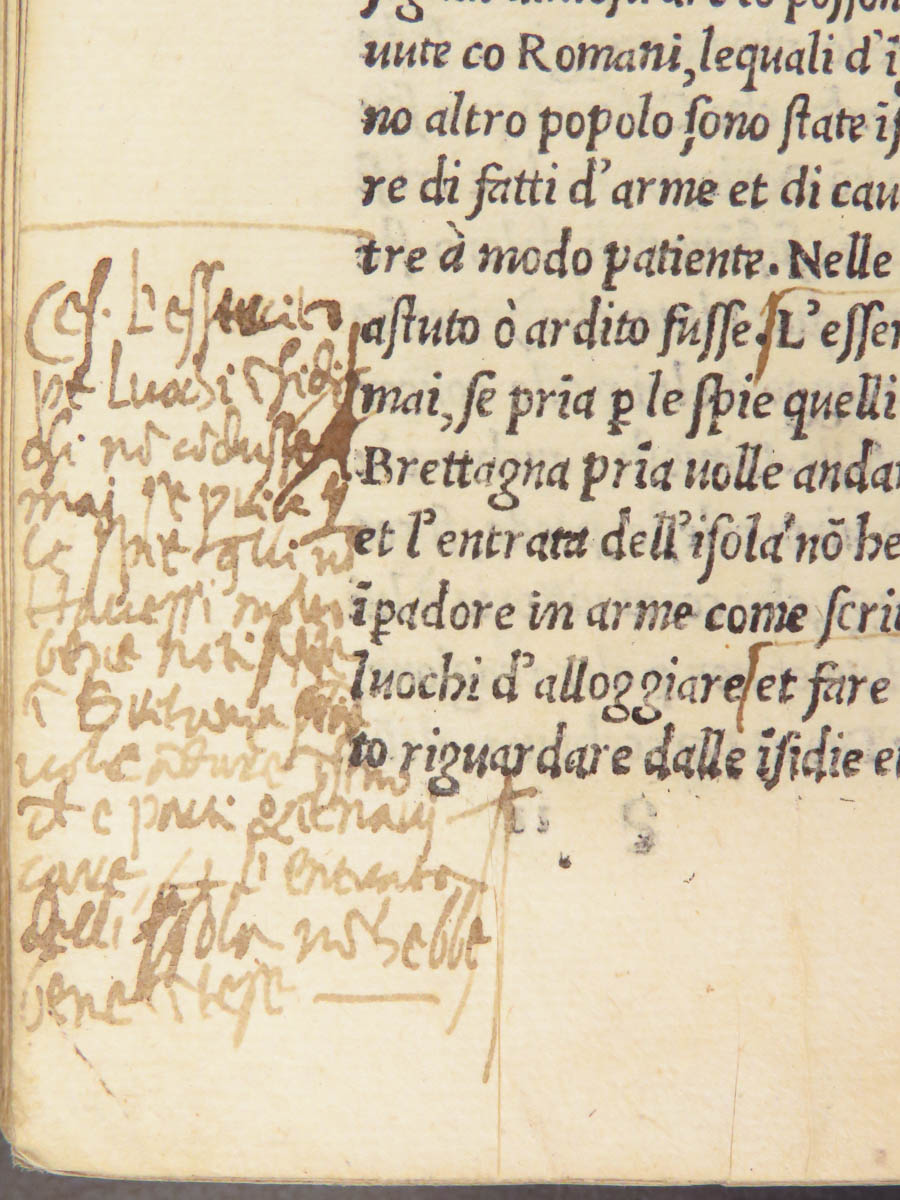 uute co Romani, lequali d'i
no altro popolo ſono ſtate iſ
re di fatti d'arme et di cau
tre à modo patiente. Nelle
aſtuto ò ardito fuſſe. L'eſſer
mai, ſe pria ꝑ le ſpie quelli
Brettagna pria uolle andar
et l'entrata dell'iſola nō he
īꝑadore in arme come ſcriu
luochi d'alloggiare et fare
to riguardare dalle īſidie et
S ii
Ceſ. L'eſſercito
luochi īſidi
oſi nō cōduſſe
mai ſe pria ꝑ
le ſpie q̄lli
bene
ī
uolle
et e porti
et l'entrata
dell' iſſola nō hebbe
bene īteſe